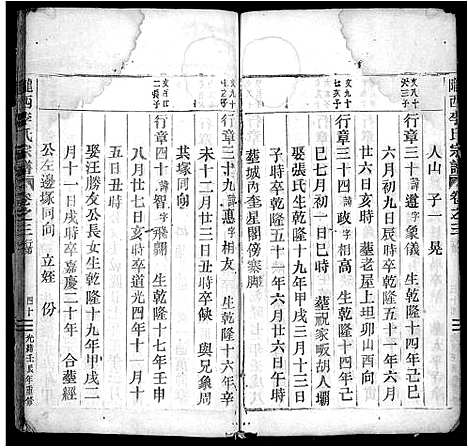 隴西李氏宗譜 卷之三
人山 子一 晃
行章三十 諱遵 字象儀 生乾隆十四年己
六月初九日辰時卒乾隆五十一年六月
廿六日亥時 葬老屋上坦卯山西向
行章三十四 諱政 字相高 生乾隆十四年己
巳七月初一日巳時 葬祝家畈胡人壩
娶張氏生乾隆十九年三月十三日
子時卒乾隆五十一年六月廿六日午時
葬城內奎星閣傍寨脚
行章三十九 諱惠 字相 生乾隆十六年辛
未十二月廿三日丑時卒候 與兄象周
共塚同向
行章四十 諱智 字飛翮 生乾隆十七年壬申
八月廿七日亥時卒道光四年十一月十
五日丑時
娶汪勝友公長女生乾隆十九年甲戌二
月十一日戌時卒嘉慶二十年 合葬經
公左邊塚同向 立姪 份
隴西李氏宗譜 卷之三
四十
光緒壬辰年重修